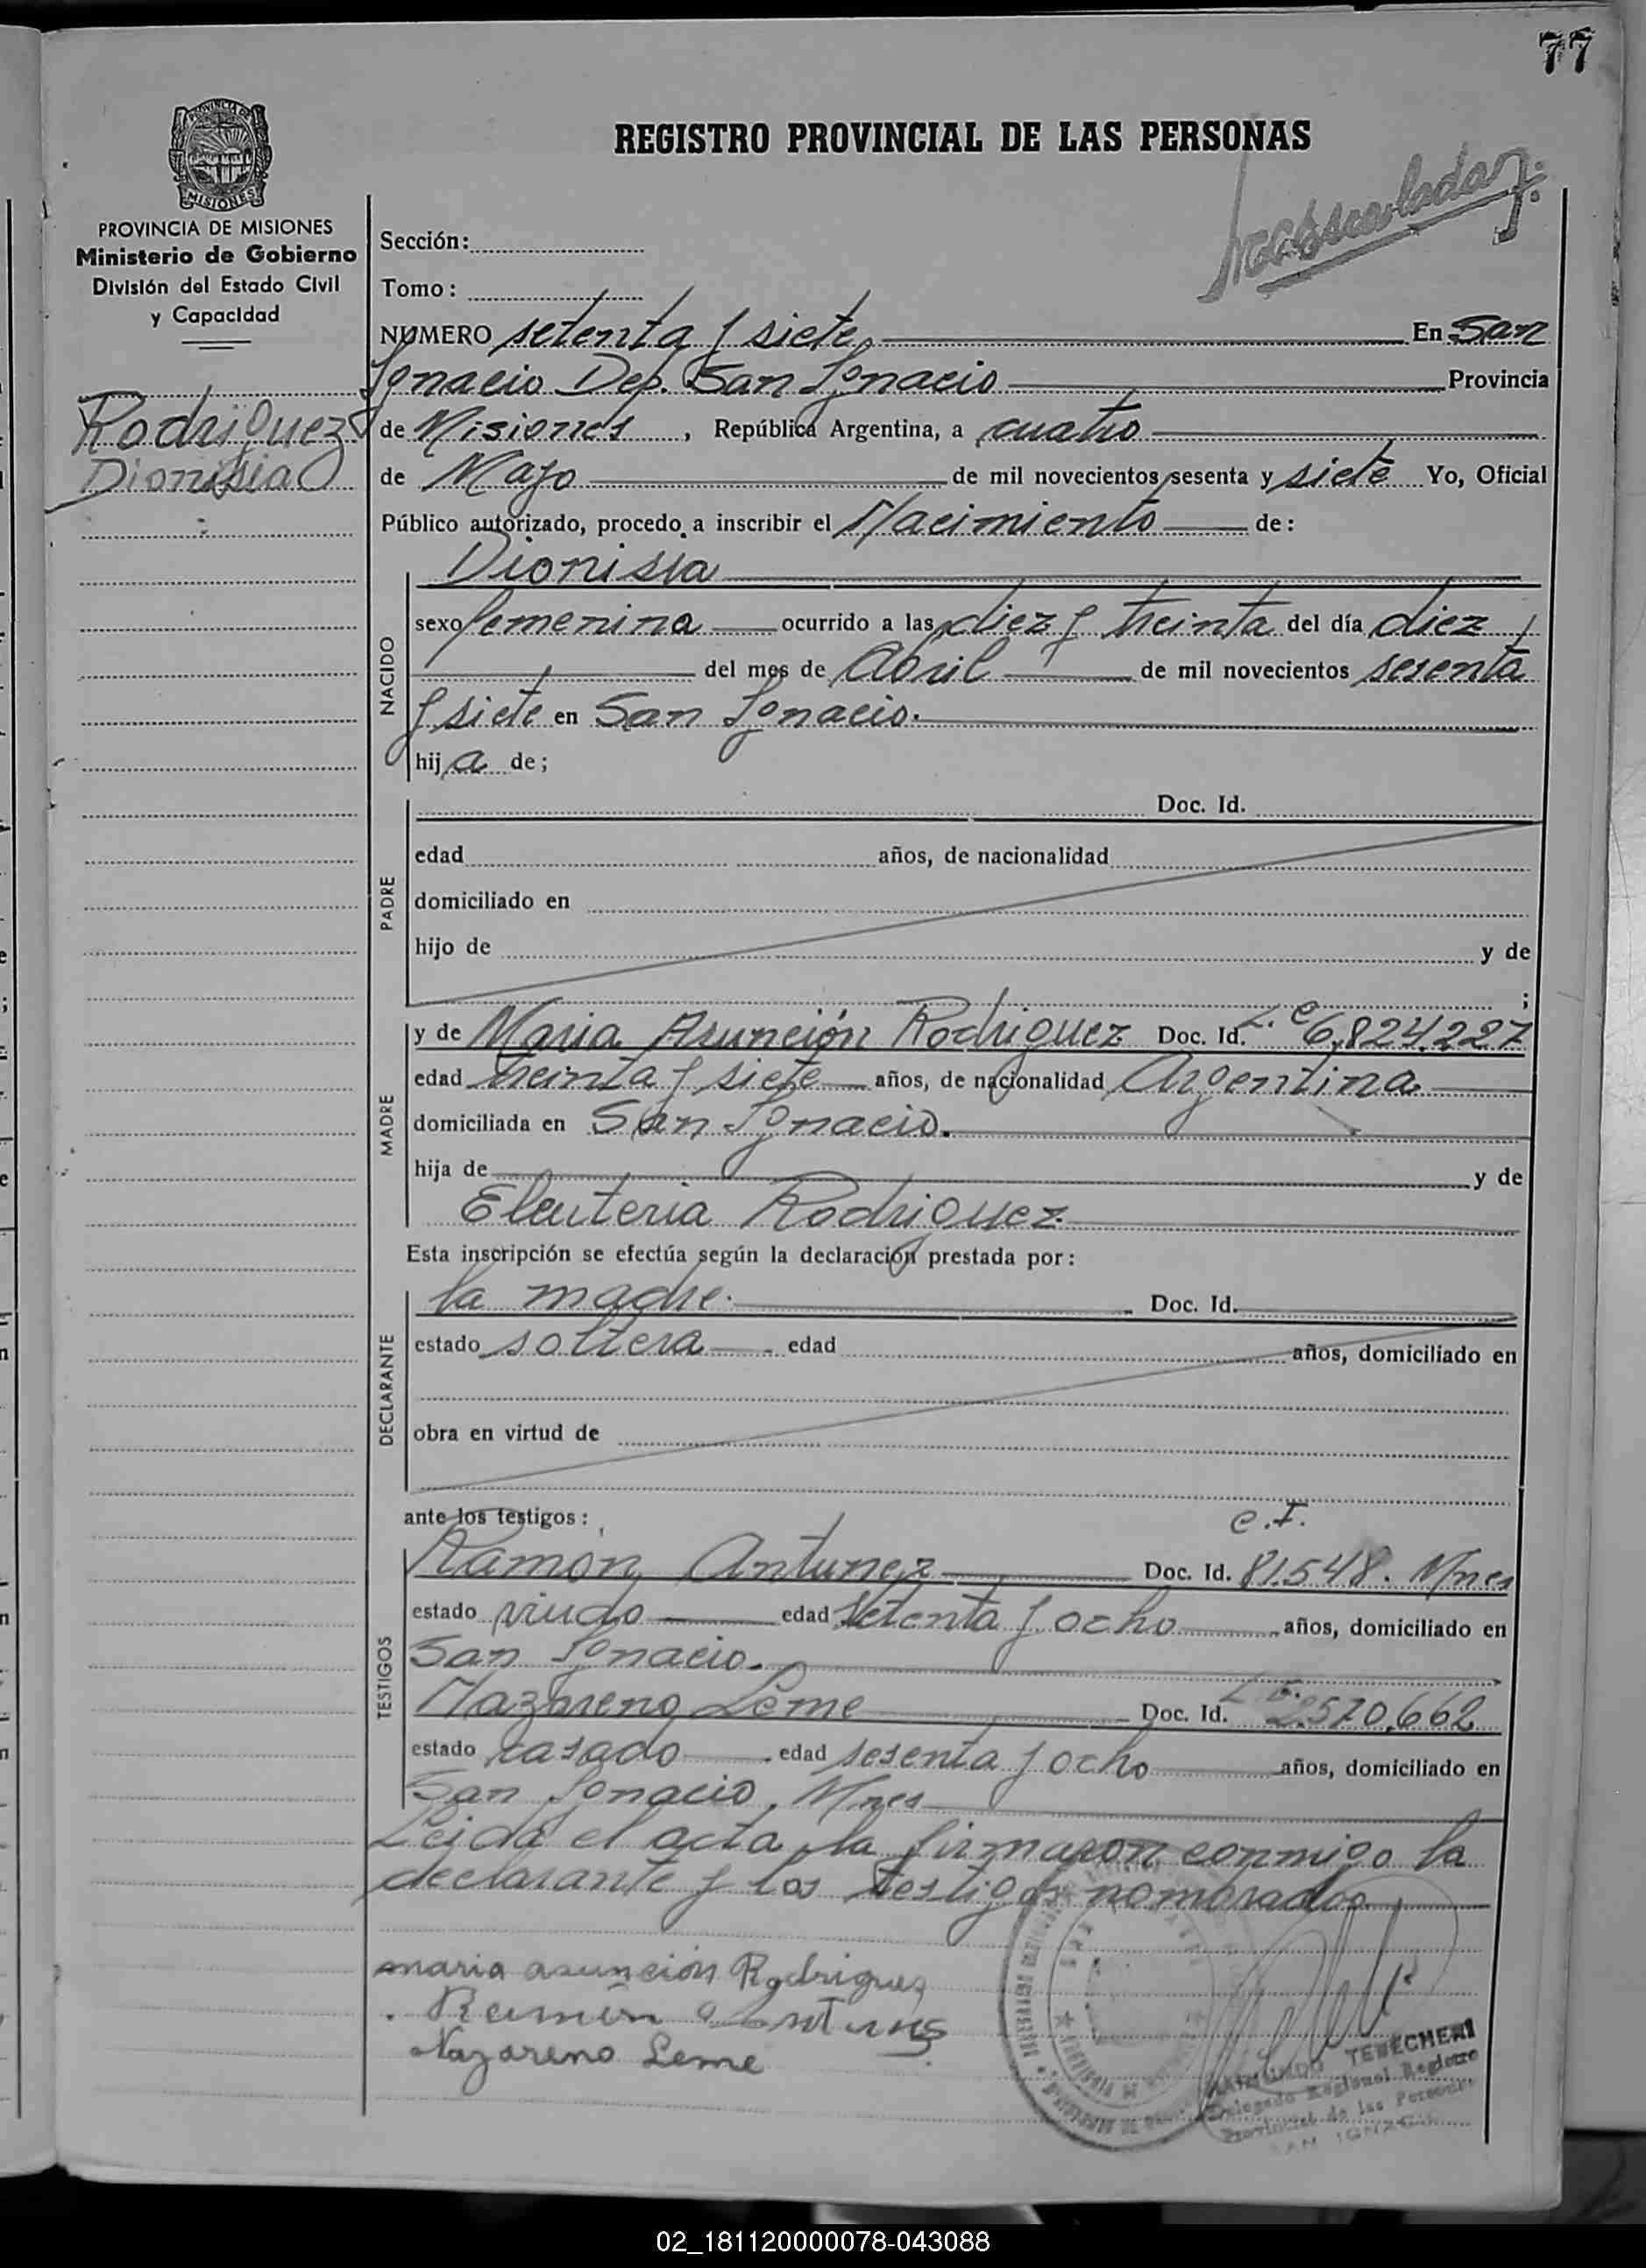 77
REGISTRO PROVINCIAL DE LAS PERSONAS
PROVINCIA DE
MISIONES
PROVINCIA DE MISIONES
Ministerio de Gobierno
División del Estado Civil
y Capacidad
Rodriguez
Dionisia
Sección:
Tomo:
NUMERO setenta y siete En San
Ignacio Dep. San Ignacio Provincia
de Misiones, República Argentina, a cuatro
de Mayo de mil novecientos sesenta y siete Yo, Oficial
Público autorizado, procedo a inscribir el Nacimiento de:
Dionisia
NACIDO
sexo femenina ocurrido a las diez y treinta del día diez
del mes de Abril de mil novecientos sesenta
y siete en San Ignacio.
hija de;
PADRE
Doc. Id.
edad años, de nacionalidad
domiciliado en
hijo de y de
;
MADRE
y de Maria Asunción Rodriguez Doc. Id. L.C 6,824,227
edad treinta y siete años, de nacionalidad Argentina
domiciliada en San Ignacio.
hija de y de
Eleuteria Rodriguez
Esta inscripción se efectúa según la declaración prestada por:
DECLARANTE
la madre. Doc. Id.
estado soltera edad años, domiciliado en
obra en virtud de
ante los testigos:
TESTIGOS
C.I.
Ramon Antunez Doc. Id. 81.548. Mnes
estado viudo edad setenta y ocho años, domiciliado en
San Ignacio.
Nazareno Leme Doc. Id. 2.570,662
estado casado edad sesenta y ocho años, domiciliado en
San Ignacio, Mnes
Leida el acta, la firmaron conmigo la
declarante y los testigos nombrados
maria asunción Rodriguez
Ramón
Nazareno Leme
TENECHERI
Delegado Regional Registro
Provincial de las Personas
SAN IGNACIO
02_181120000078-043088